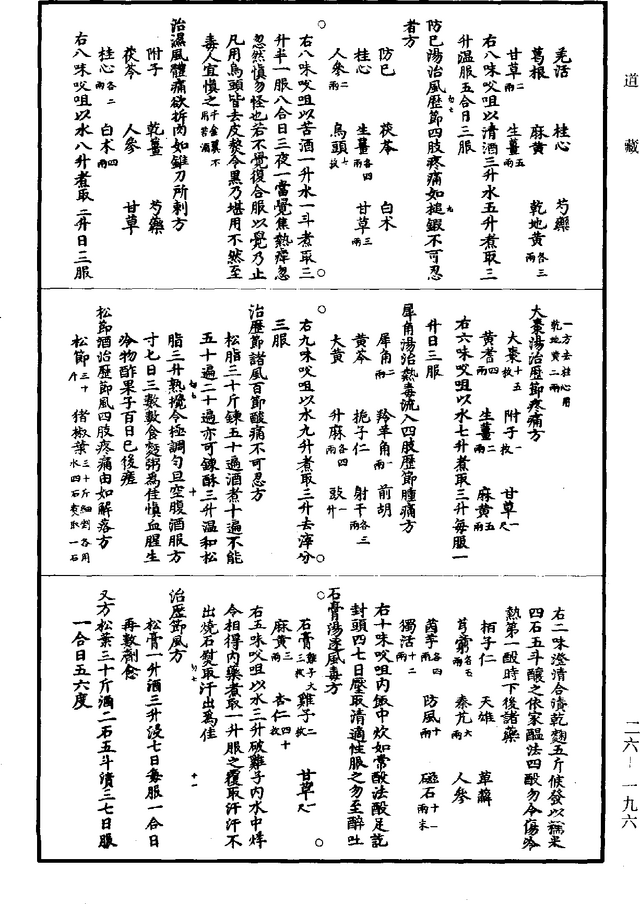 道藏
羌活 桂心 芍藥
葛根 麻黃 乾地黃各三兩
甘草二兩 生薑五兩
右八味㕮咀以清酒三升水五升煮取三
升溫服五合日三服
防已湯治風歷節四肢疼痛如搥鍛不可忍
者方
防已 茯苓 白术
桂心 生薑各四兩 甘草三兩
人參二兩 烏頭七枚
右八味㕮咀以苦酒一升水一斗煮取三
升半一服八合日三夜一當覺焦熱痺忽
忽然慎勿怪也若不覺復合服以覺乃止
凡用烏頭皆去皮熬令黑乃堪用不然至
毒人宜慎之千金翼不用苦酒
治濕風體痛欲折肉如錐刀所刺方
附子 乾薑 芍藥
茯苓 人參 甘草
桂心各二兩 白术四兩
右八味㕮咀以水八升煮取二升日三服
一方去桂心用乾地黃二兩
大棗湯治歷節疼痛方
大棗十五枚 附子一枚 甘草一尺
黃耆四兩 生薑二兩 麻黃五兩
右六味㕮咀以水七升煮取三升每服一
升日三服
犀角湯治熱毒流入四肢歷節腫痛方
犀角二兩 羚羊角一兩 前胡
黃芩 梔子仁 射干各三兩
大黃 升麻各四兩 豉一升
右九味㕮咀以水九升煮取三升去滓分
三服
治歷節諸風百節酸痛不可忍方
松脂三十斤鍊五十遍酒煮十遍不能
五十遍二十遍亦可鍊酥三升溫和松
脂三升熟攪令極調勻旦空腹酒服方
寸七日三數數食麪粥為佳慎血腥生
冷物酢果子百日已後瘥
松節酒治歷節風四肢疼痛由如解落方
松節三十斤 猪椒葉三十斤細剉各用水四石煮取一石
右二味澄清合漬乾麴五斤候發以糯米
四石五斗釀之依家醞法四酘勿令傷冷
熱第一酘時下後諸藥
栢子仁 天雄 萆薢
芎藭各五兩 秦艽六兩 人參
茵芋各四兩 防風十兩 磁石十一兩末
獨活十二兩
右十味㕮咀內飯中炊如常酘法酘足訖
封頭四七日壓取清適性服之勿至醉吐
石膏湯透風毒方
石膏雞子大三枚 雞子二枚 甘草一尺
麻黃三兩 杏仁四十枚
右五味㕮咀以水三升破雞子內水中烊
令相得內藥煮取一升服之覆取汗汗不
出燒石熨取汗出為佳
治歷節風方
松膏一升酒三升浸七日每服一合日
再數劑愈
又方松葉三十斤酒二石五斗漬三七日服
一合日五六度
二六—一九六